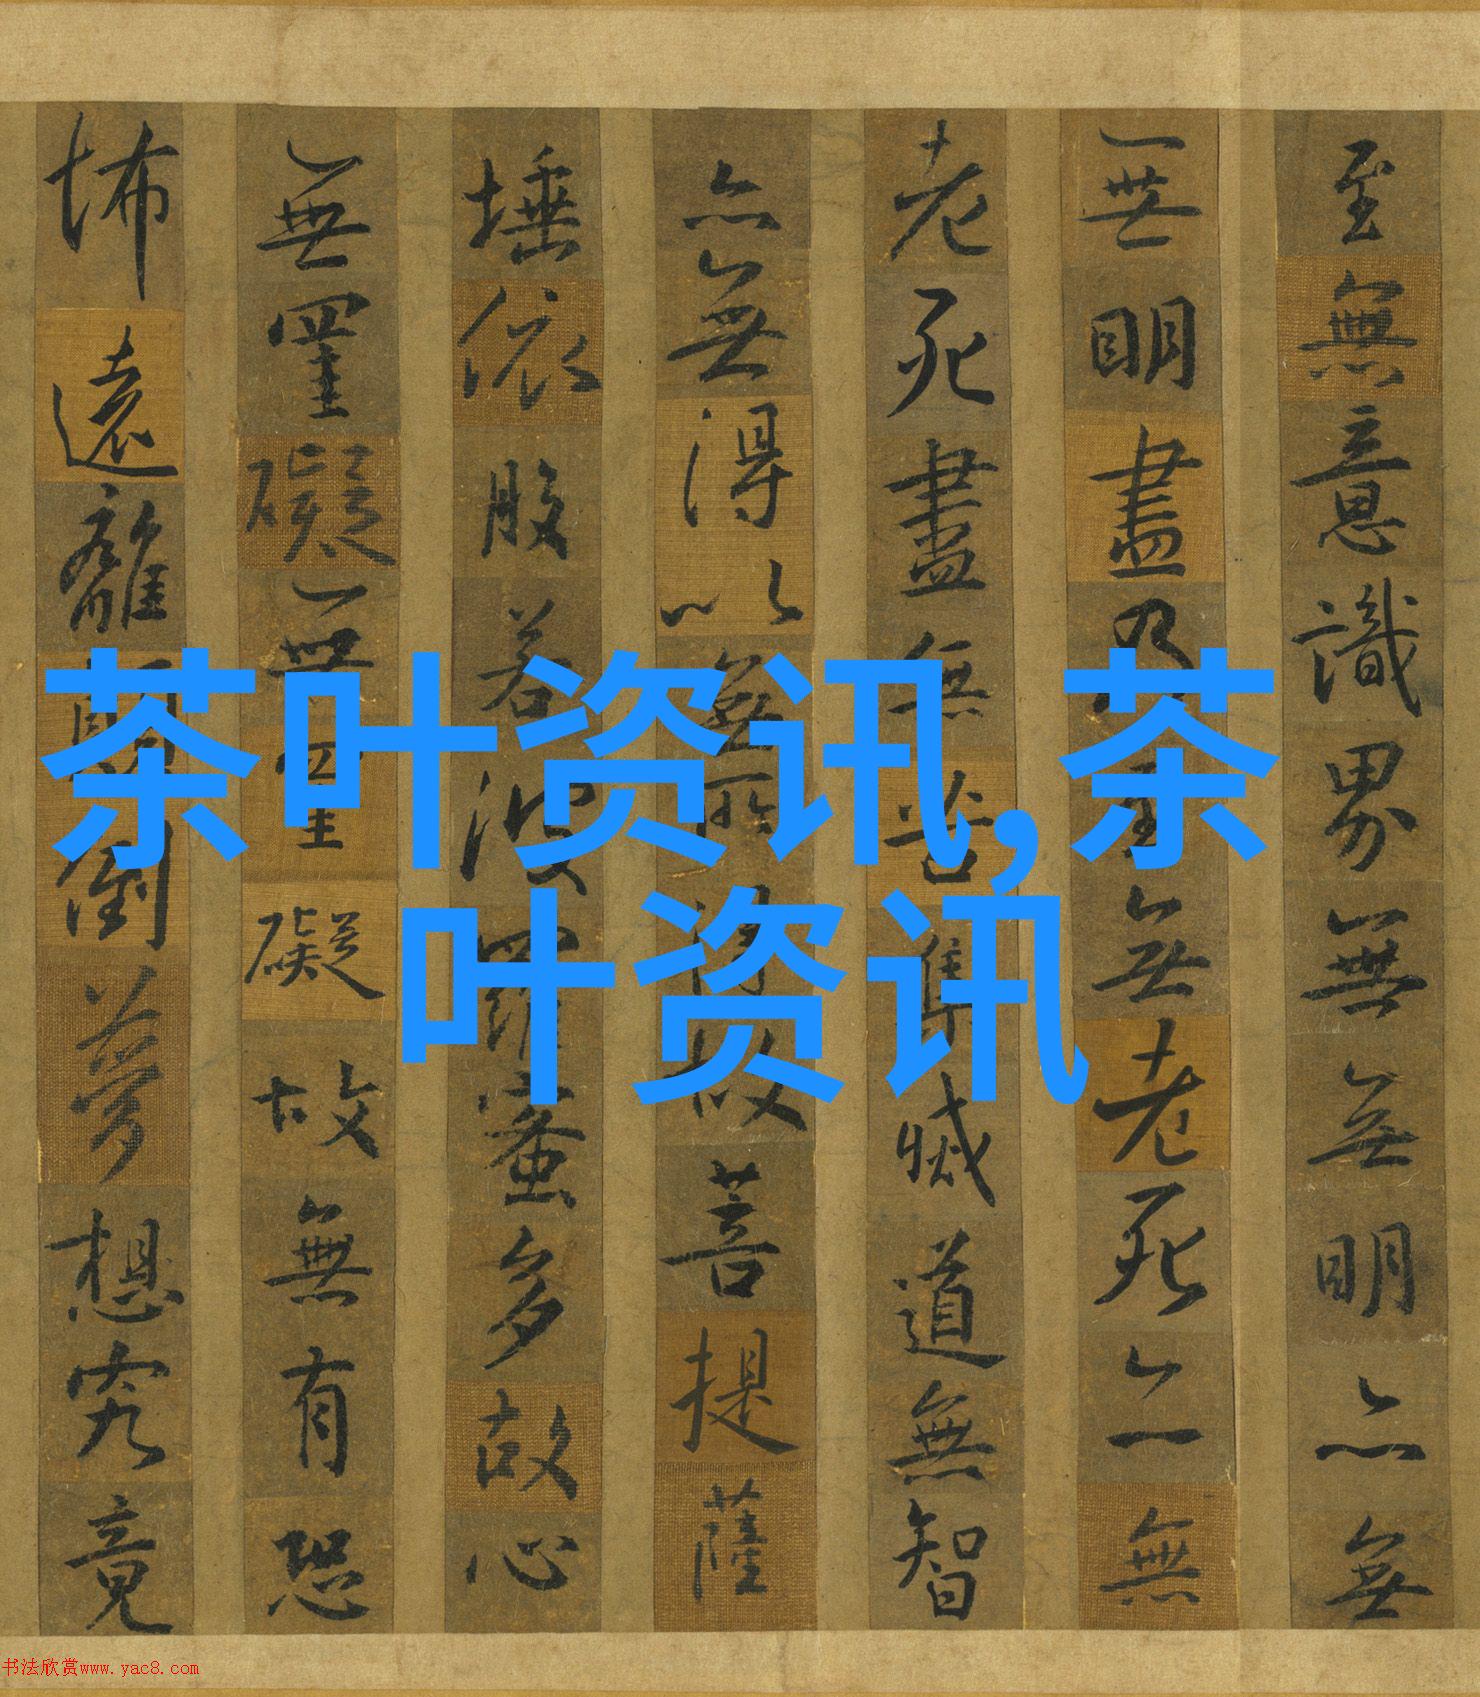 至無意識界無無明亦無
無明盡乃至無老死亦無
老死盡無苦集滅道無智
亦無得以無所得故菩提薩
埵依般若波羅蜜多故心
無罣礙無罣礙故無有恐
怖遠離顛倒夢想究竟
茶叶资讯,茶
叶资讯
书法欣赏www.yac8.com